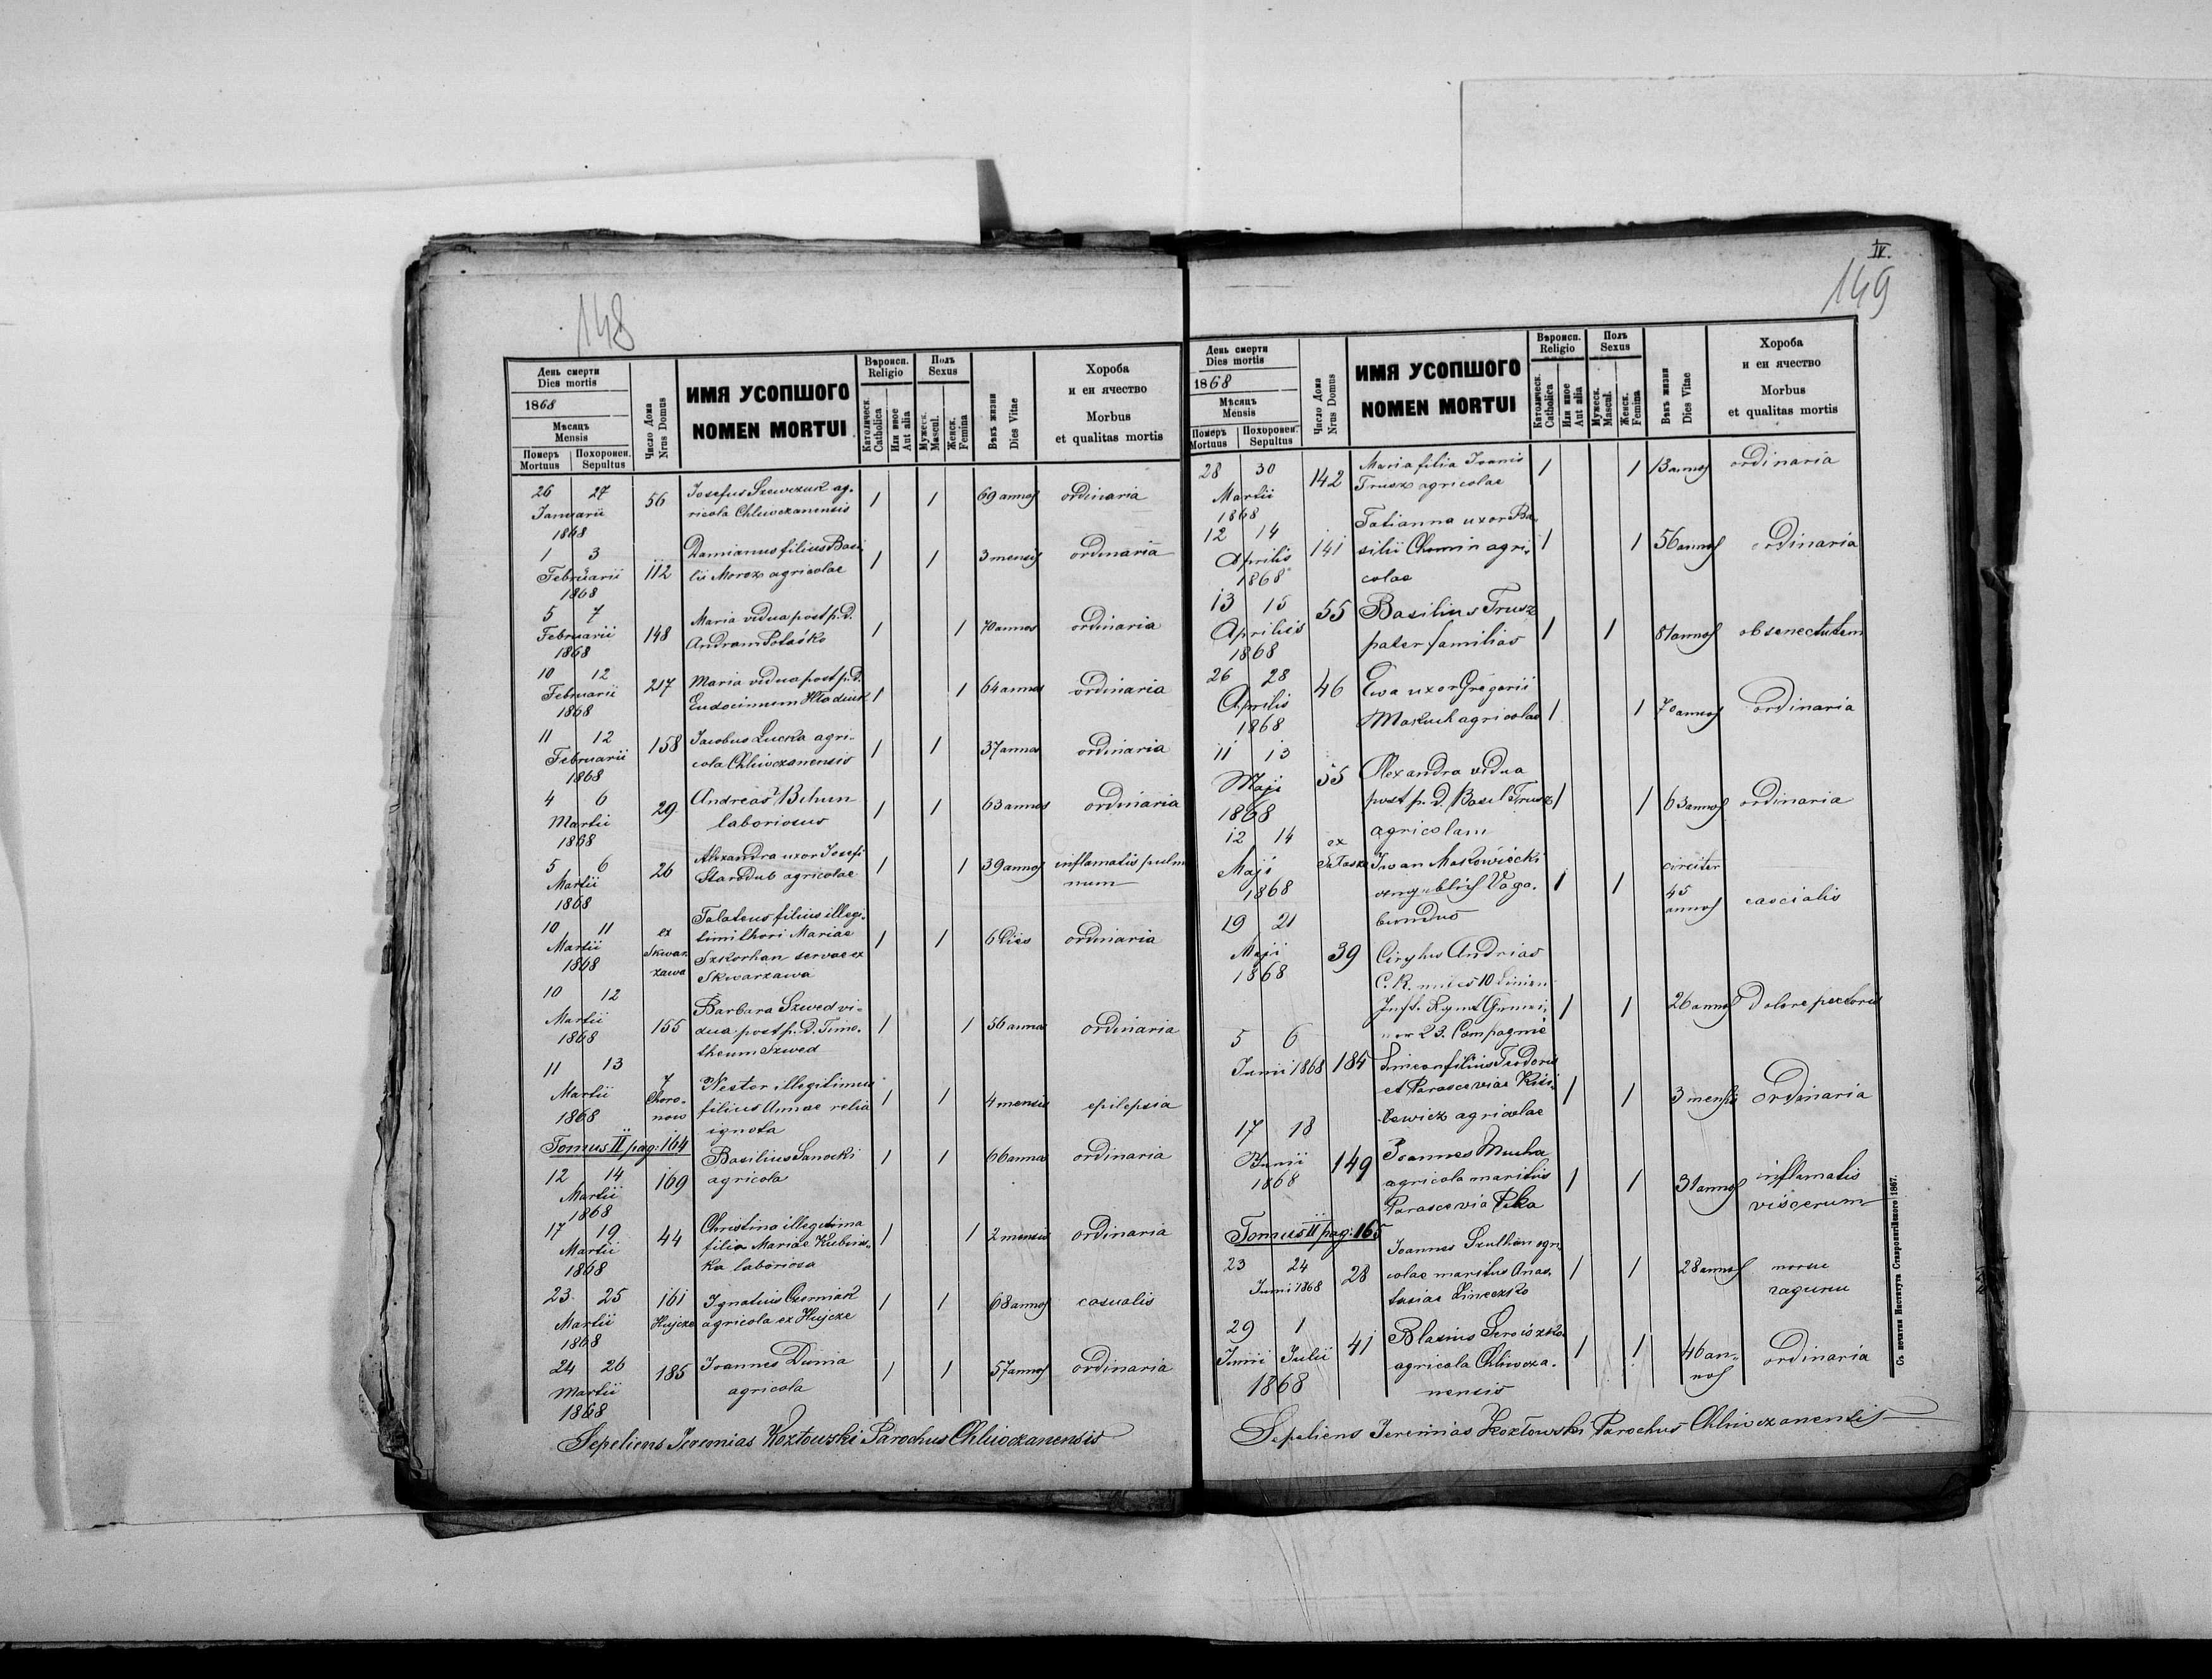 148
День смерти
Dies mortis
1868
Мѣсяць
Mensis
Померъ Mortuus
Похоронен. Sepultus
Число Дома
Nrus Domus
ИМЯ УСОПШОГО
NOMEN MORTUI
Вѣроисп.
Religio
Католическ.
Catholica
Или иное
Aut alia
Полъ
Sexus
Мужеск.
Mascul.
Женск.
Femina
Вѣкъ жизни
Dies Vitae
Хороба
и еи ячество
Morbus
et qualitas mortis
26 27 Januarii 1868 56 Josefus Szewczuk ag-
ricola Chliwczanensis 1 1 69 annos ordinaria
1 3 Februarii 1868 112 Damianus filius Basi
lii Moroz agricolae 1 1 3 mensis ordinaria
5 7 Februarii 1868 148 Maria vidua post p. D.
Andream Potaśko 1 1 70 annos ordinaria
10 12 Februarii 1868 217 Maria vidua post p. D.
Eudocimum 1 1 64 annos ordinaria
11 12 Februarii 1868 158 Jacobus Lucka agri-
cola Chliwczanensis 1 1 37 annos ordinaria
4 6 Martii 1868 29 Andreas Bihun
laboriosus 1 1 63 annos ordinaria
5 6 Martii 1868 26 Alexandra uxor Josefi
Starodub agricolae 1 1 39 annos inflamatis pulm
num
10 11 Martii 1868 ex Skwar
zawa filius illegi-
timi thori Mariae
Szkorhan servae ex
Skwarzawa 1 1 6 dies ordinaria
10 12 Martii 1868 155 Barbara Szwed vi-
dua post p. D. Timo-
theum Szwed 1 1 56 annos ordinaria
11 13 Martii 1868 7 Choro-
now Nestor illegitimus
filius Annae relia
ignota 1 1 4 mensis epilepsia
Tomus II pag: 164
12 14 Martii 1868 169 Basilius Sanocki
agricola 1 1 66 annos ordinaria
17 19 Martii 1868 44 Christina illegitima
filia Mariae Kubins-
ka laboriosa 1 1 2 mensis ordinaria
23 25 Martii 1868 161 Hujcze Ignatius Czerniak
agricola ex Hujcze 1 1 68 annos casualis
24 26 Martii 1868 185 Joannes Dunia
agricola 1 1 57 annos ordinaria
Sepeliens Jeremias Kozłowski Parochus Chliwczanensis
IV.
149
День смерти
Dies mortis
1868
Мѣсяць
Mensis
Померъ Mortuus
Похоронен. Sepultus
Число Дома
Nrus Domus
ИМЯ УСОПШОГО
NOMEN MORTUI
Вѣроисп.
Religio
Католическ.
Catholica
Или иное
Aut alia
Полъ
Sexus
Мужеск.
Mascul.
Женск.
Femina
Вѣкъ жизни
Dies Vitae
Хороба
и еи ячество
Morbus
et qualitas mortis
28 30 Martii 1868 142 Maria filia Joanis
Trusz agricolae 1 1 13 annos ordinaria
12 14 Aprilis 1868 141 Tatianna uxor Ba-
silii Chomin agri-
colae 1 1 56 annos ordinaria
13 15 Aprilis 1868 55 Basilius Trusz
pater familias 1 1 81 annos ob senectutem
26 28 Aprilis 1868 46 Ewa uxor Gregorii
Makuch agricolae 1 1 70 annos ordinaria
11 13 Maji 1868 55 Alexandra vidua
post p. D. Basil Trusz
agricolam 1 1 63 annos ordinaria
12 14 Maji 1868 ex Iwan Makowiecki
Vaga-
bundus 1 1 circiter
45
annos
19 21 Maji 1868 39 Cirylus Andrias
C. K. miles 10 Linien
Inft. Rgmt
23. Compagnie 1 1 26 annos Dolore pectoris
5 6 Junii 1868 184 Simeon filius Teodori
et Parasceviae Kisi-
lewicz agricolae 1 1 3 mensis ordinaria
17 18 Junii 1868 149 Joannes Mucha
agricola maritus
Parascevia 1 1 31 annos inflamatis
viscerum
Tomus II pag: 165
23 24 Junii 1868 28 Joannes Szulhan agri
colae maritus Anas-
tasiae Lineczko 1 1 28 annos morsu
29 1 Junii Julii 1868 41 Blasius
agricola Chliwcza-
nensis 1 1 46 an-
nos ordinaria
Sepeliens Jeremias Kozłowski Parochus Chliwczanensis
Съ печатни Института Ставропигійского 1867.